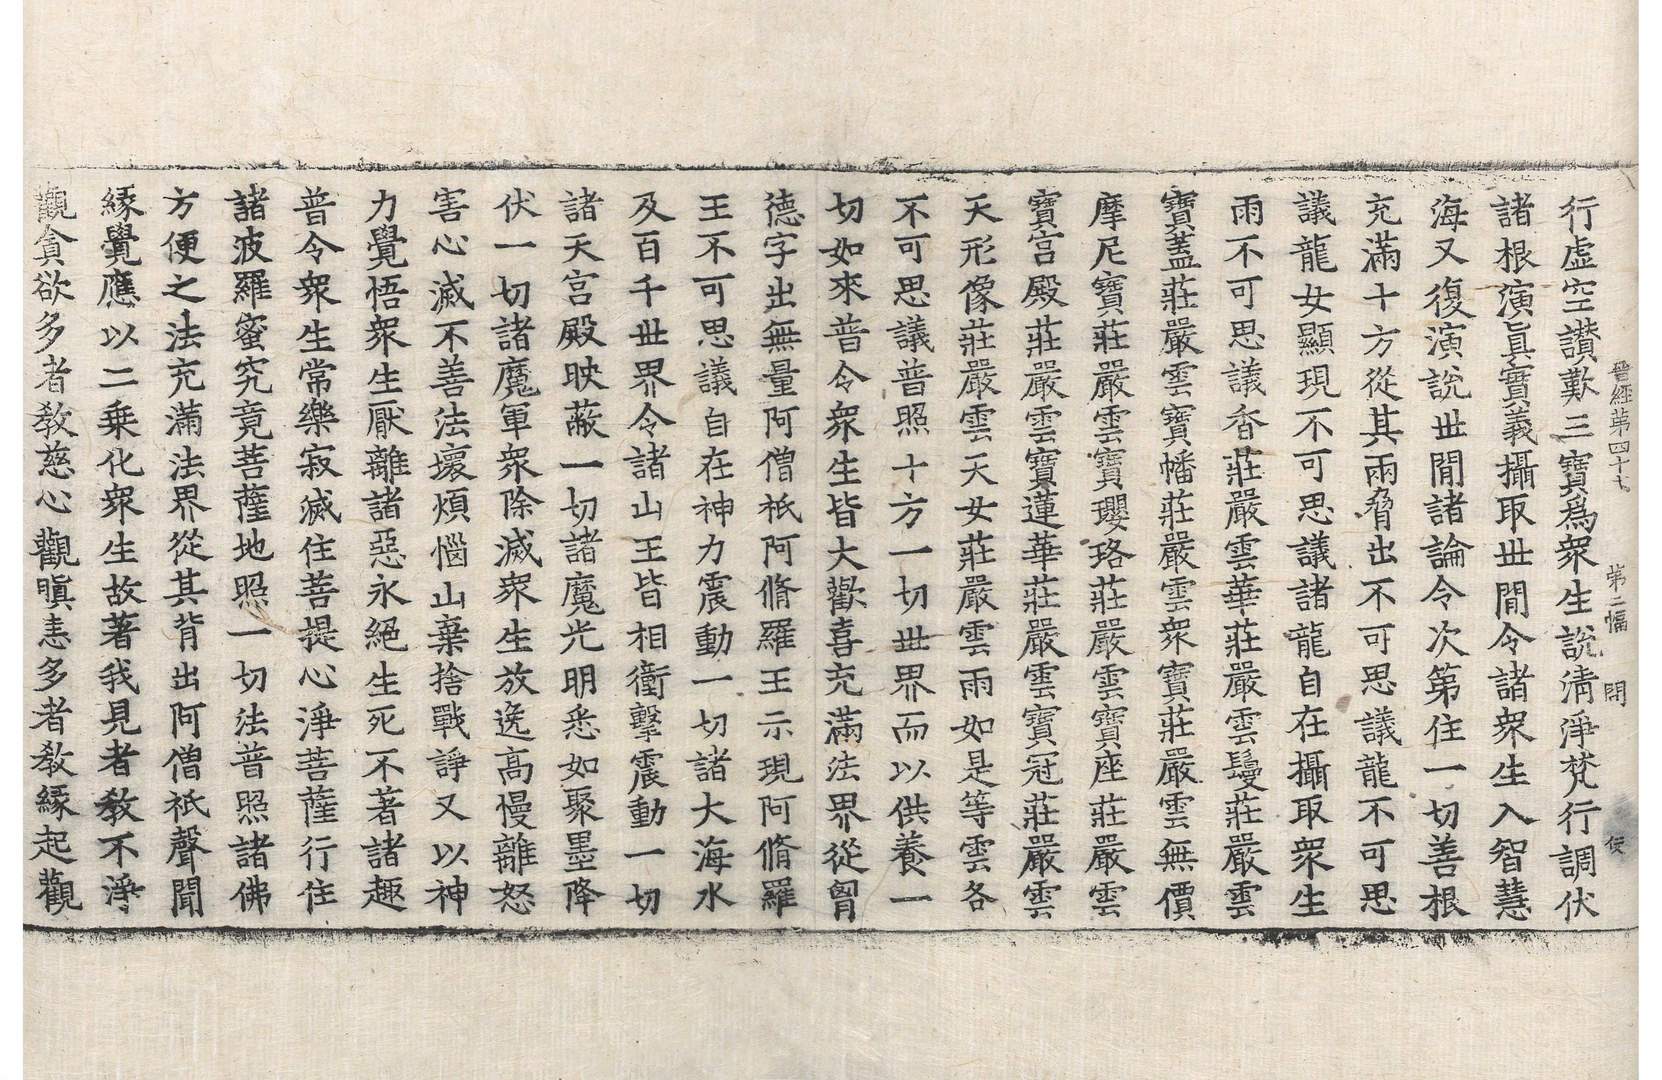 晉經第四十七 第二幅 問 使
行虛空讃歎三寶爲衆生說淸淨梵行調伏
諸根演眞實義攝取世間令諸衆生入智慧
海又復演說世間諸論令次第住一切善根
充滿十方從其兩脅出不可思議龍不可思
議龍女顯現不可思議諸龍自在攝取衆生
雨不可思議香莊嚴雲華莊嚴雲鬘莊嚴雲
寶蓋莊嚴雲寶幡莊嚴雲衆寶莊嚴雲無價
摩尼寶莊嚴雲寶瓔珞莊嚴雲寶座莊嚴雲
寶宮殿莊嚴雲寶蓮華莊嚴雲寶冠莊嚴雲
天形像莊嚴雲天女莊嚴雲雨如是等雲各
不可思議普照十方一切世界而以供養一
切如來普令衆生皆大歡喜充滿法界從胷
德字出無量阿僧祇阿脩羅王示現阿脩羅
王不可思議自在神力震動一切諸大海水
及百千世界令諸山王皆相衝擊震動一切
諸天宮殿映蔽一切諸魔光明悉如聚墨降
伏一切諸魔軍衆除滅衆生放逸高慢離怒
害心滅不善法壞煩惱山棄捨戰諍又以神
力覺悟衆生厭離諸惡永絕生死不著諸趣
普令衆生常樂寂滅住菩提心淨菩薩行住
諸波羅蜜究竟菩薩地照一切法普照諸佛
方便之法充滿法界從其背出阿僧祇聲聞
緣覺應以二乘化衆生故著我見者敎不淨
觀貪欲多者敎慈心觀瞋恚多者敎緣起觀